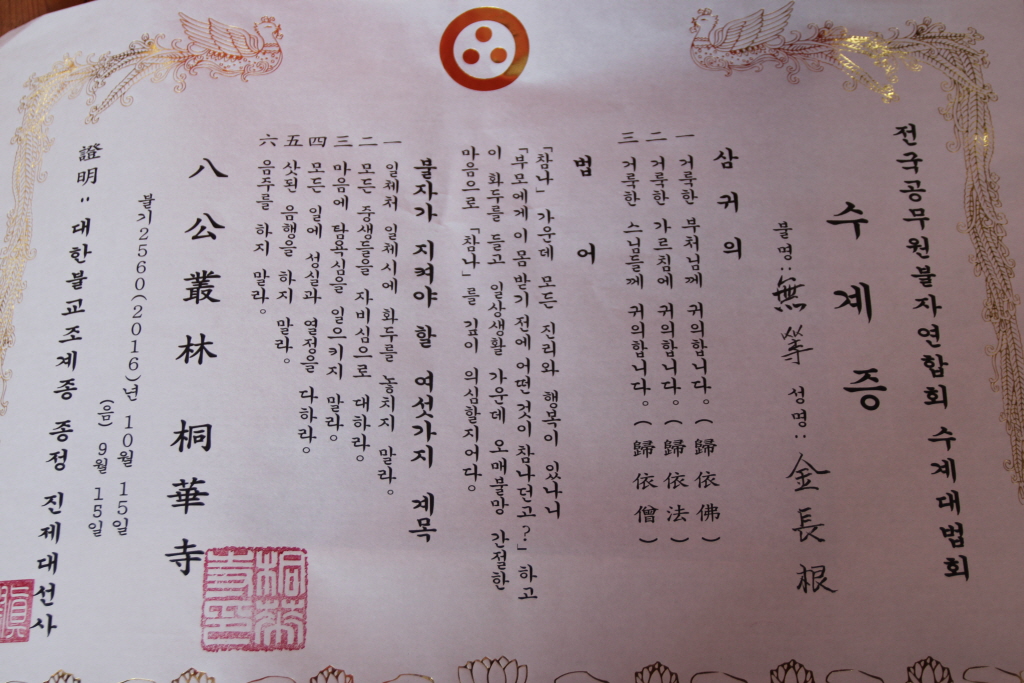 전국공무원불자연합회 수계대법회
수계증
불명: 無等 성명: 金長根
삼귀의
一 거룩한 부처님께 귀의합니다。(歸依佛)
二 거룩한 가르침에 귀의합니다。(歸依法)
三 거룩한 스님들께 귀의합니다。(歸依僧)
법어
「참나」 가운데 모든 진리와 행복이 있나니
「부모에게 이몸 받기 전에 어떤것이 참나던고?」하고
이 화두를 들고 일상생활 가운데 오매불망 간절한
마음으로 「참나」를 깊이 의심할지어다。
불자가 지켜야 할 여섯가지 계목
一 일체처 일체시에 화두를 놓치지 말라。
二 모든 중생들을 자비심으로 대하라。
三 마음에 탐욕심을 일으키지 말라。
四 모든 일에 성실과 열정을 다하라。
五 삿된 음행을 하지 말라。
六 음주를 하지 말라。
八公叢林 桐華寺
불기2560(2016)년 10월 15일
(음) 9월 15일
證明 = 대한불교조계종 종정 진제대선사